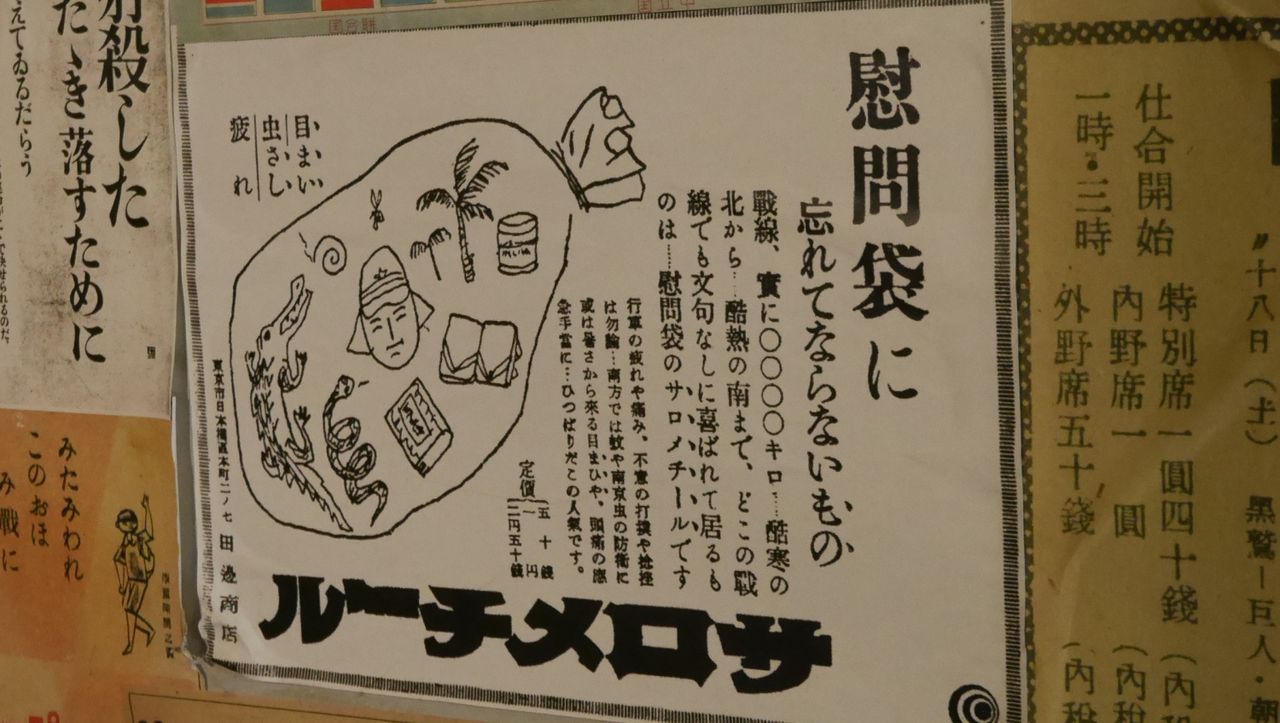 慰問袋に
忘れてならないもの
戰線、實に〇〇〇〇キロ……酷寒の
北から……酷熱の南まで、どこの戰
線でも文句なしに喜ばれて居るも
のは……慰問袋のサロメチールです
行軍の疲れや痛み、不意の打撲や捻挫
は勿論…南方では蚊や南京虫の防衛に
或は暑さから來る目まひや、頭痛の應
急手當に…ひつぱりだこの人氣です。
定價
五十錢
一円
二円五十錢
目まい
虫さし
疲れ
東京市日本橋區本町二ノ七 田邊商店
ルーチメロサ
仕合開始
一時・三時
特別席一圓四十錢（內
內野席一圓（內稅
外野席五十錢（內稅
十八日（土）黑鷲－巨人・朝
殺した
たゝき落すために
えてゐるだらう
みたみわれ
このおほ
み戰に